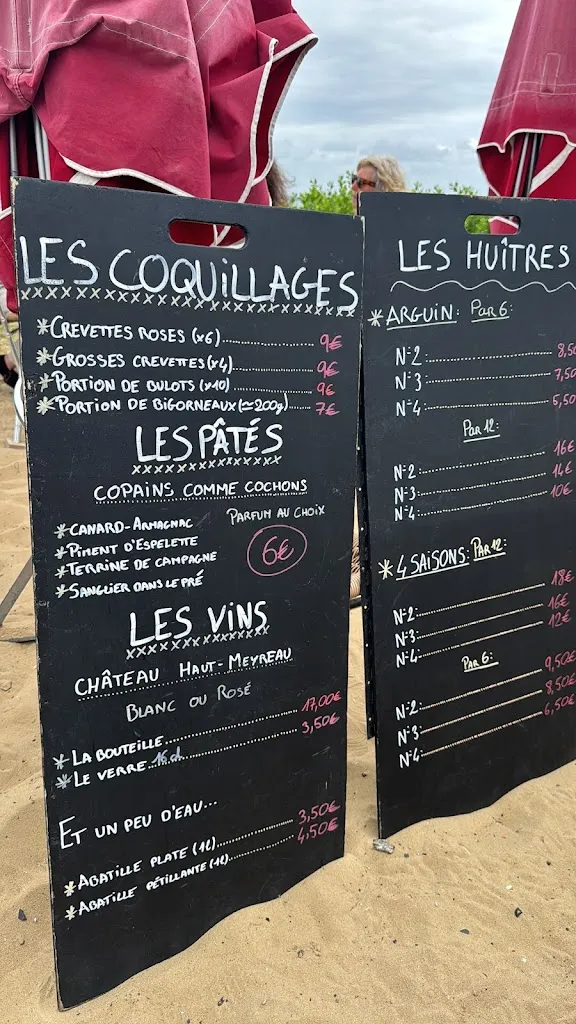 LES COQUILLAGES
*CREVETTES ROSES (x6)..................9€
*GROSSES CREVETTES (x4)..................9€
*PORTION DE BULOTS (x10)..................9€
*PORTION DE BIGORNEAUX (≃200g)..........7€
LES PÂTÉS
COPAINS COMME COCHONS
PARFUM AU CHOIX
6€
*CANARD-ARMAGNAC
*PIMENT D'ESPELETTE
*TERRINE DE CAMPAGNE
*SANGLIER DANS LE PRÉ
LES VINS
CHÂTEAU HAUT-MEYREAU
BLANC OU ROSÉ
*LA BOUTEILLE..................17,00€
*LE VERRE 16 cl..................3,50€
ET UN PEU D'EAU...
*ABATILLE PLATE (1L)..................3,50€
*ABATILLE PÉTILLANTE (1L)..................4,50€
LES HUÎTRES
*ARGUIN: PAR 6:
N°2:..................8,50
N°3:..................7,50
N°4:..................5,50
PAR 12:
N°2:..................16€
N°3:..................14€
N°4:..................10€
*4 SAISONS: PAR 12:
N°2:..................18€
N°3:..................16€
N°4:..................12€
PAR 6:
N°2:..................9,50€
N°3:..................8,50€
N°4:..................6,50€